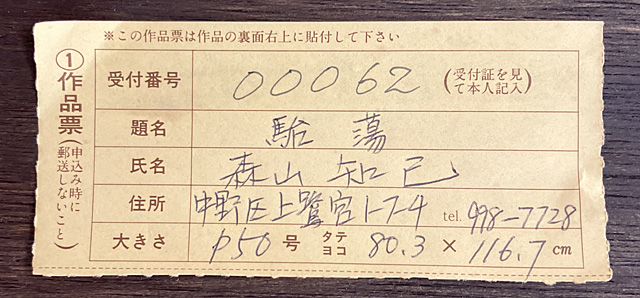 ※この作品票は作品の裏面右上に貼付して下さい
①作品票(申込み時に郵送しないこと)
受付番号 00062 (受付証を見て本人記入)
題名 駘蕩
氏名 森山知己
住所 中野区上鷺宮1-7-4 tel. 998-7728
大きさ P50号 タテヨコ 80.3 × 116.7 cm